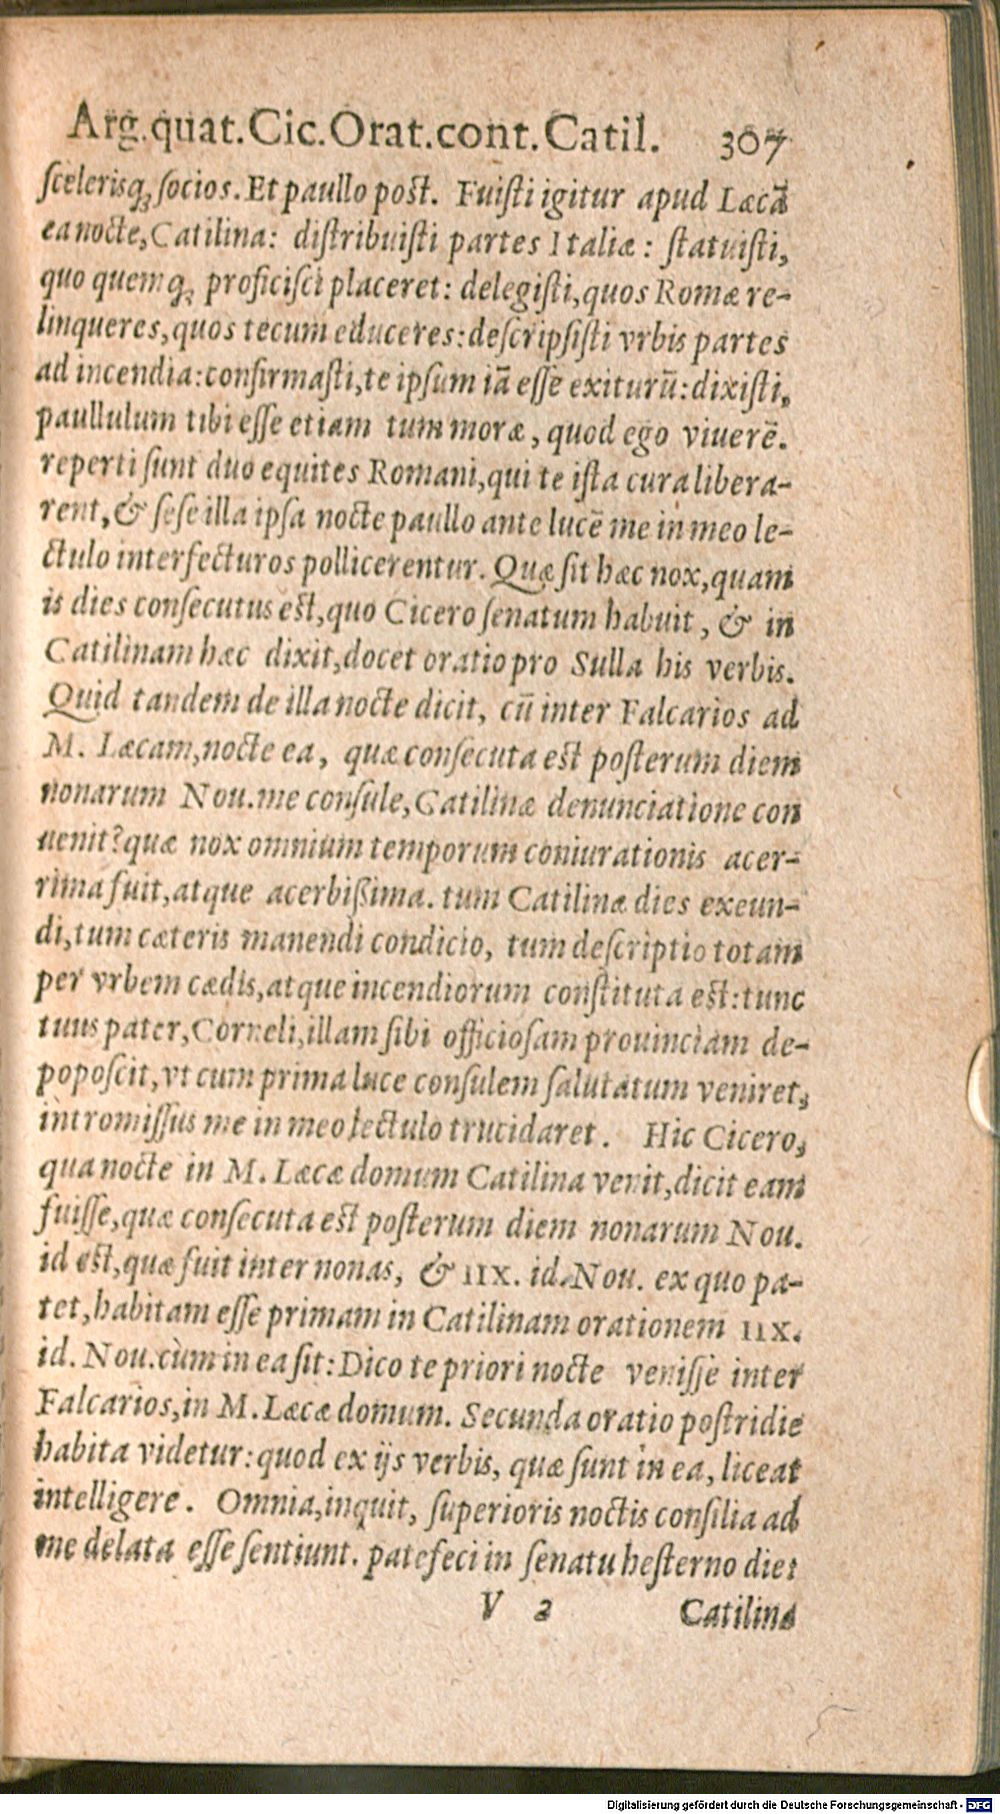 Arg.quat.Cic.Orat.cont.Catil. 307
ſcelerisq; ſocios. Et paullo poſt. Fuiſti igitur apud Læcã
ea nocte, Catilina: diſtribuiſti partes Italiæ: ſtatuiſti,
quo quemq; proficiſci placeret: delegiſti, quos Romæ re-
linqueres, quos tecum educeres: deſcripſiſti vrbis partes
ad incendia: confirmaſti, te ipſum iã eſſe exiturũ: dixiſti,
paullulum tibi eſſe etiam tum moræ, quod ego viuerẽ.
reperti ſunt duo equites Romani, qui te iſta cura libera-
rent, & ſeſe illa ipſa nocte paullo ante lucẽ me in meo le-
ctulo interfecturos pollicerentur. Quæ ſit hæc nox, quam
is dies conſecutus eſt, quo Cicero ſenatum habuit, & in
Catilinam hæc dixit, docet oratio pro Sulla his verbis.
Quid tandem de illa nocte dicit, cũ inter Falcarios ad
M. Læcam, nocte ea, quæ conſecuta eſt poſterum diem
nonarum Nou. me conſule, Catilinæ denunciatione con
uenit? quæ nox omnium temporum coniurationis acer-
rima fuit, atque acerbißima. tum Catilinæ dies exeun-
di, tum cæteris manendi condicio, tum deſcriptio totam
per vrbem cædis, atque incendiorum conſtituta eſt: tunc
tuus pater, Corneli, illam ſibi officioſam prouinciam de-
popoſcit, vt cum prima luce conſulem ſalutatum veniret,
intromiſſus me in meo lectulo trucidaret. Hic Cicero,
qua nocte in M. Læcæ domum Catilina venit, dicit eam
fuiſſe, quæ conſecuta eſt poſterum diem nonarum Nou.
id eſt, quæ fuit inter nonas, & IIX. id. Nou. ex quo pa-
tet, habitam eſſe primam in Catilinam orationem IIX.
id. Nou. cùm in ea ſit: Dico te priori nocte veniſſe inter
Falcarios, in M. Læcæ domum. Secunda oratio poſtridie
habita videtur: quod ex ijs verbis, quæ ſunt in ea, liceat
intelligere. Omnia, inquit, ſuperioris noctis conſilia ad
me delata eſſe ſentiunt. patefeci in ſenatu heſterno die:
V 2 Catilina
Digitalisierung gefördert durch die Deutsche Forschungsgemeinschaft - DFG